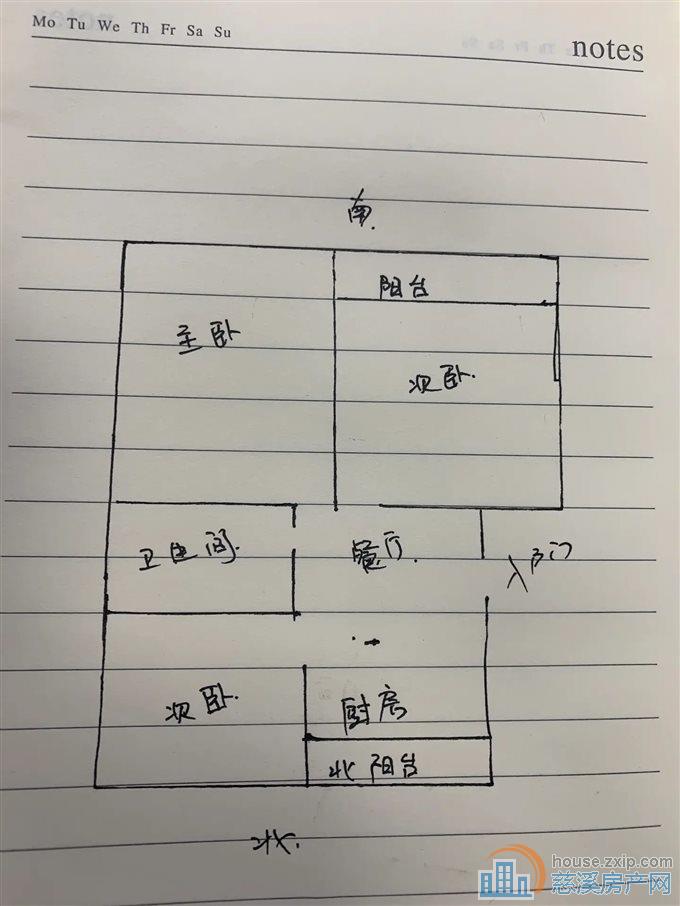 Mo Tu We Th Fr Sa Su
notes
南.
阳台
主卧
次卧.
卫生间.
餐厅.
入户门
次卧.
厨房
北阳台
北.
house.zxip.com
慈溪房产网